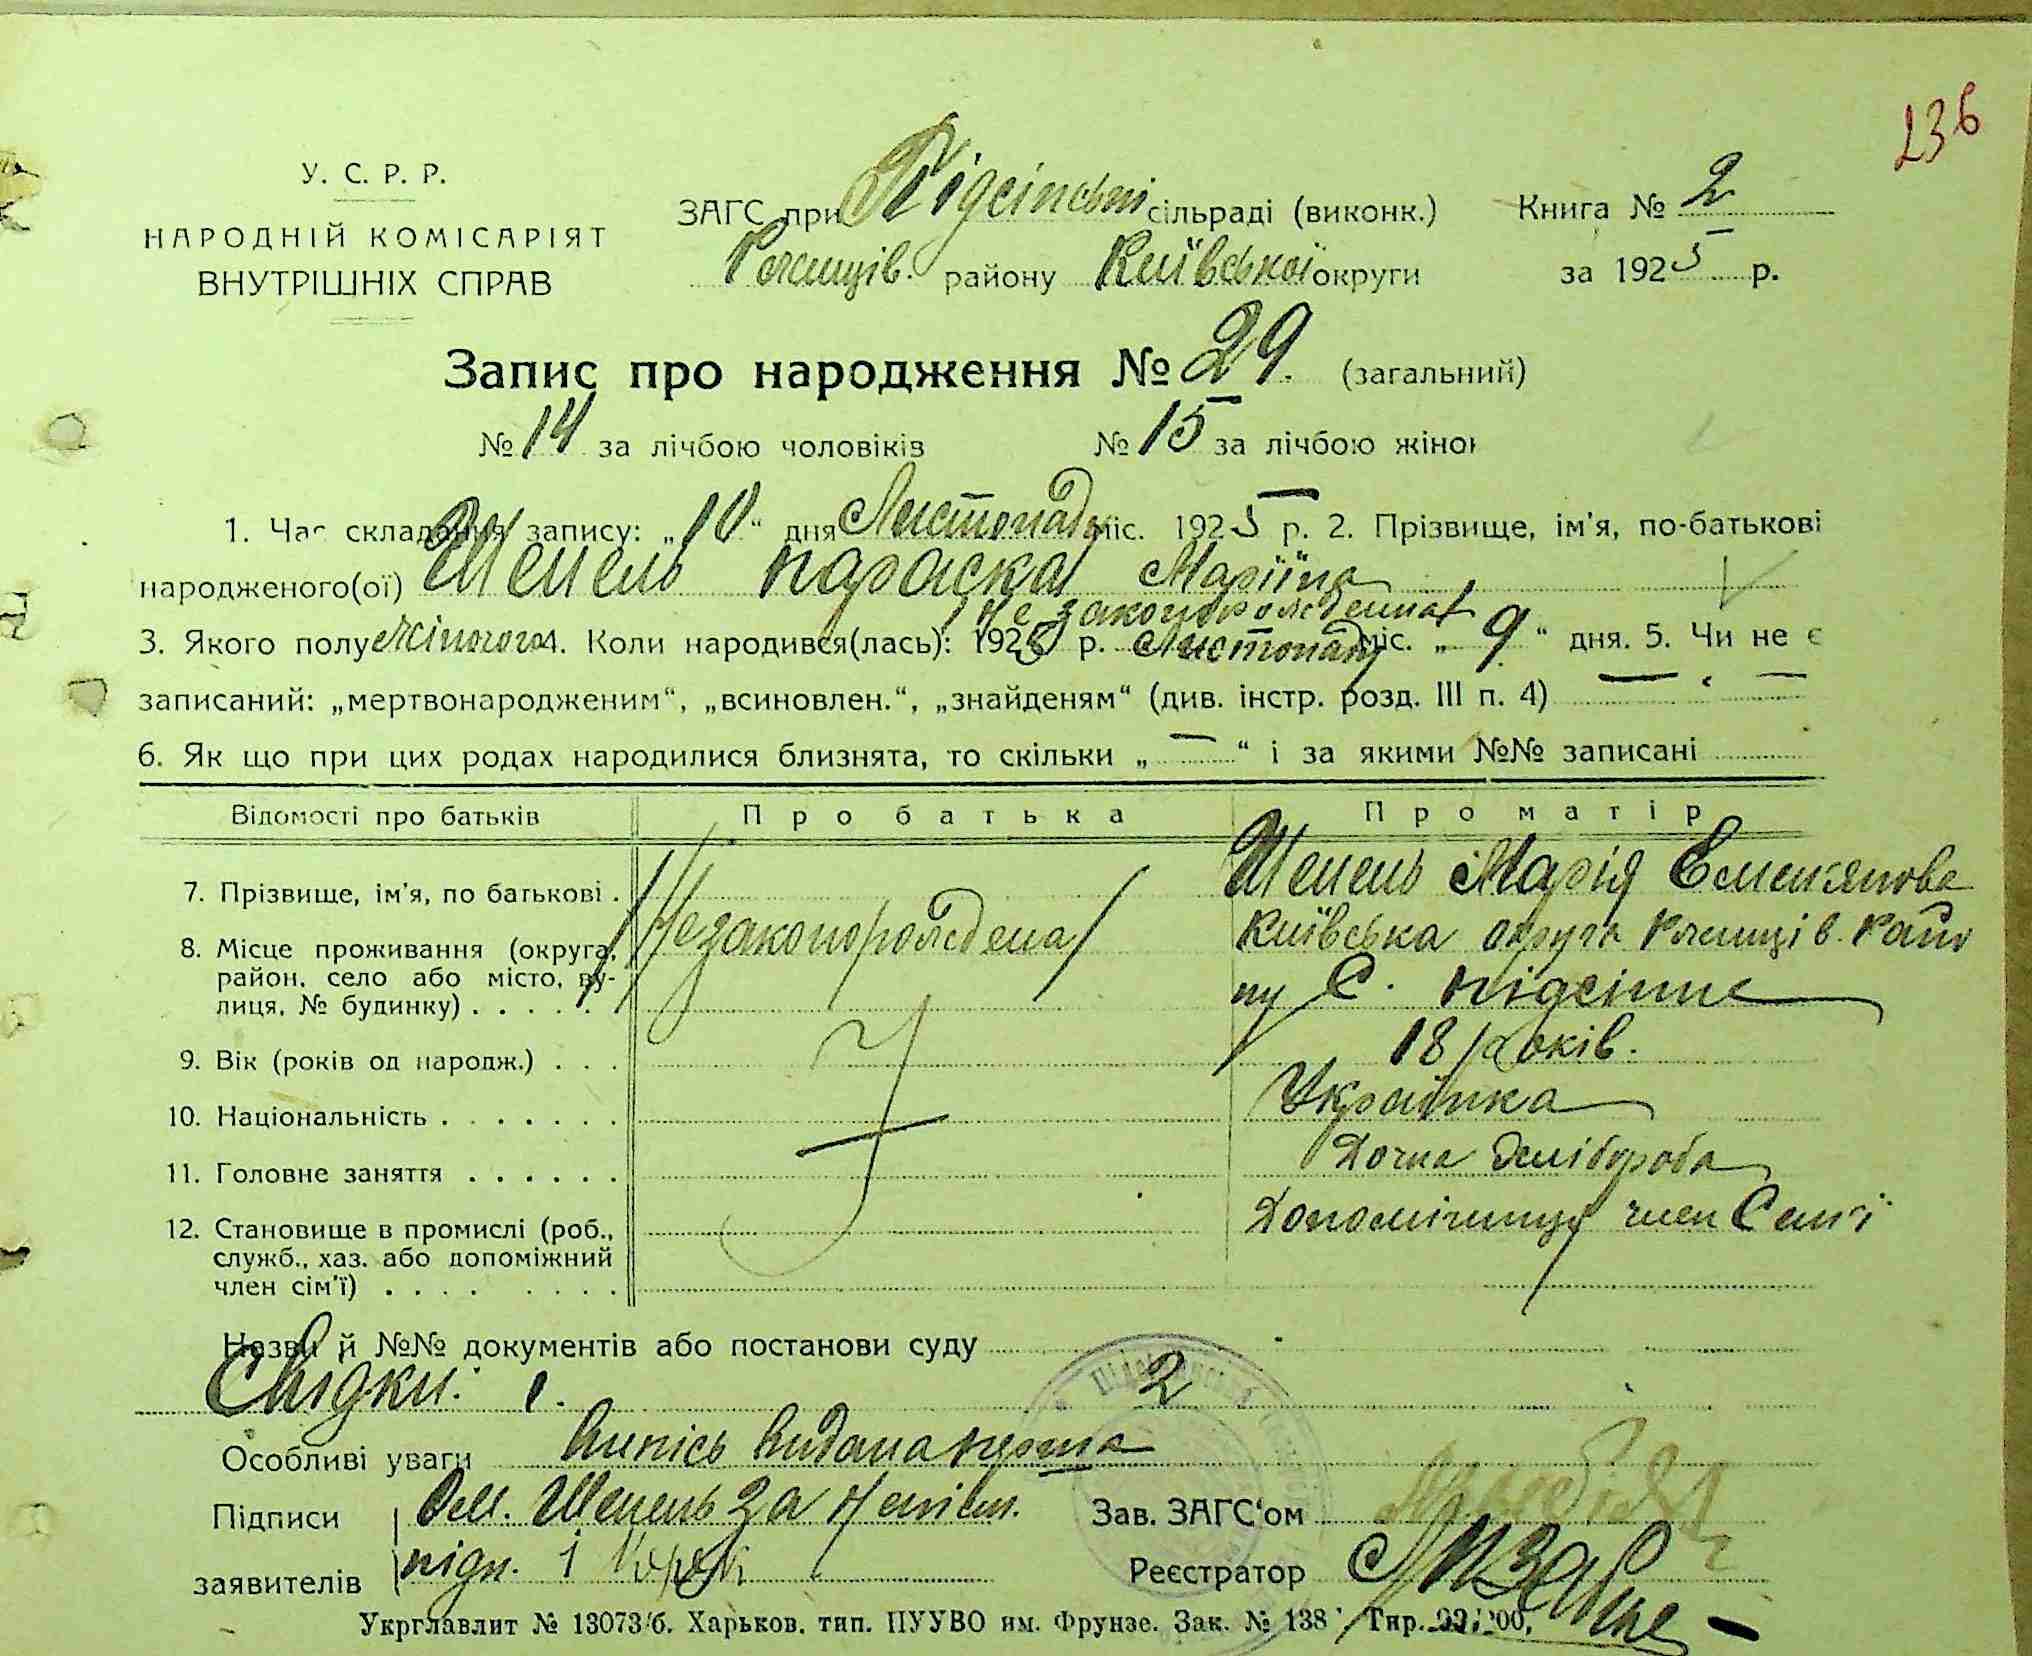 236
У. С. Р. Р.
НАРОДНІЙ КОМІСАРІЯТ
ВНУТРІШНІХ СПРАВ
ЗАГС при Підсінські сільраді (виконк.)
Ржищів. району Київської округи
Книга № 2
за 1925 р.
Запис про народження № 29. (загальний)
№ 14 за лічбою чоловіків № 15 за лічбою жінок
1. Час складання запису: „10“ дня Листопада міс. 1925 р. 2. Прізвище, ім'я, по-батькові
народженого(ої) Шепель Параска Маріїна
не законорожденная
3. Якого полу жіночого 4. Коли народився(лась): 1925 р. Листопаду міс. „9“ дня. 5. Чи не є
записаний: „мертвонародженим“, „всиновлен.“, „знайденям“ (див. інстр. розд. III п. 4) — —
6. Як що при цих родах народилися близнята, то скільки „—“ і за якими №№ записані
Відомості про батьків Про батька Про матір
7. Прізвище, ім'я, по батькові . Шепель Марія Емельянова
Незаконорождена
8. Місце проживання (округа, Київська округа Ржищів. Райо
район, село або місто, ву- ну С. Підсінне
лиця, № будинку) . . . . .
9. Вік (років од народж.) . . . 18 Років.
10. Національність . . . . . . . Українка
11. Головне заняття . . . . . . Дочка Хлібороба
12. Становище в промислі (роб., Допоміжниця член Семї
служб., хаз. або допоміжний
член сім'ї) . . . . . . . .
Назви й №№ документів або постанови суду
Свідки: 1. 2
Особливі уваги Випісь видана перша
Підписи Ом. Шепель за Непісм.
заявителів підп. і
Зав. ЗАГС'ом
Реєстратор
Укрглавлит № 13073/б. Харьков. тип. ПУУВО им. Фрунзе. Зак. № 138